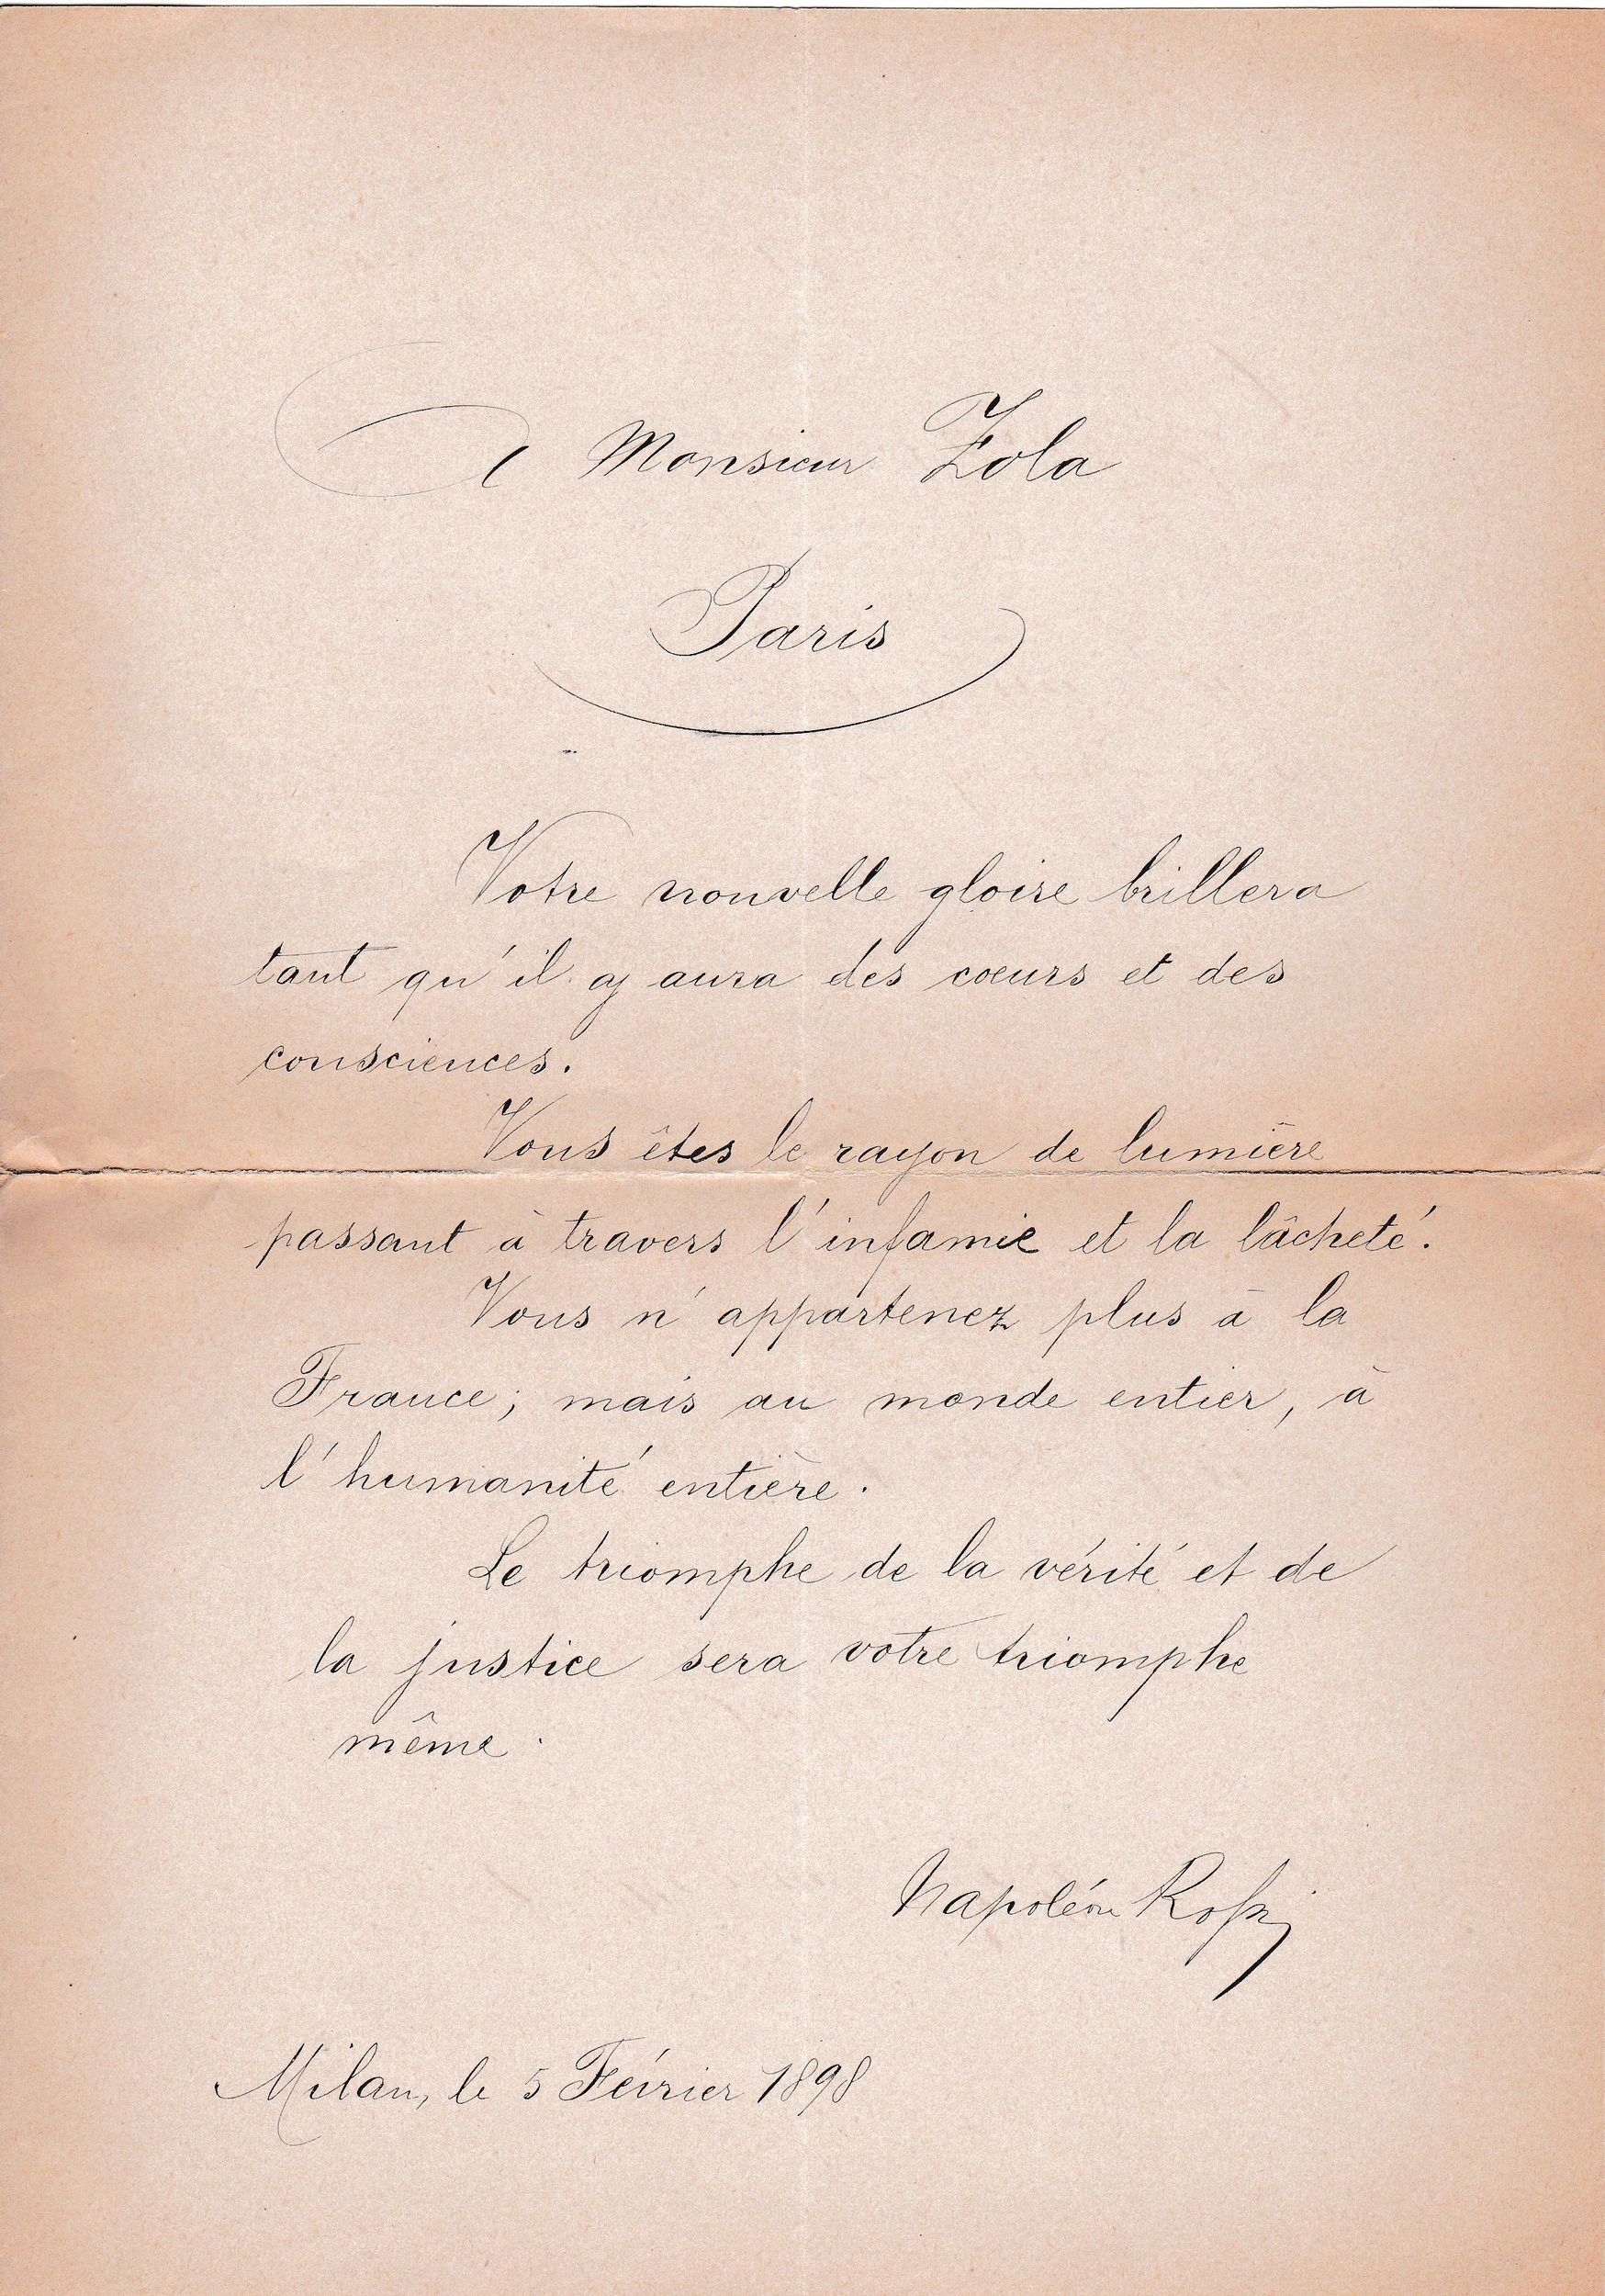 A Monsieur Zola
Paris
Votre nouvelle gloire brillera
tant qu'il y aura des cœurs et des
consciences.
Vous êtes le rayon de lumière
passant à travers l'infamie et la lâcheté.
Vous n'appartenez plus à la
France; mais au monde entier, à
l'humanité entière.
Le triomphe de la vérité et de
la justice sera votre triomphe
même.
Napoléon Rossi
Milan, le 5 Février 1898